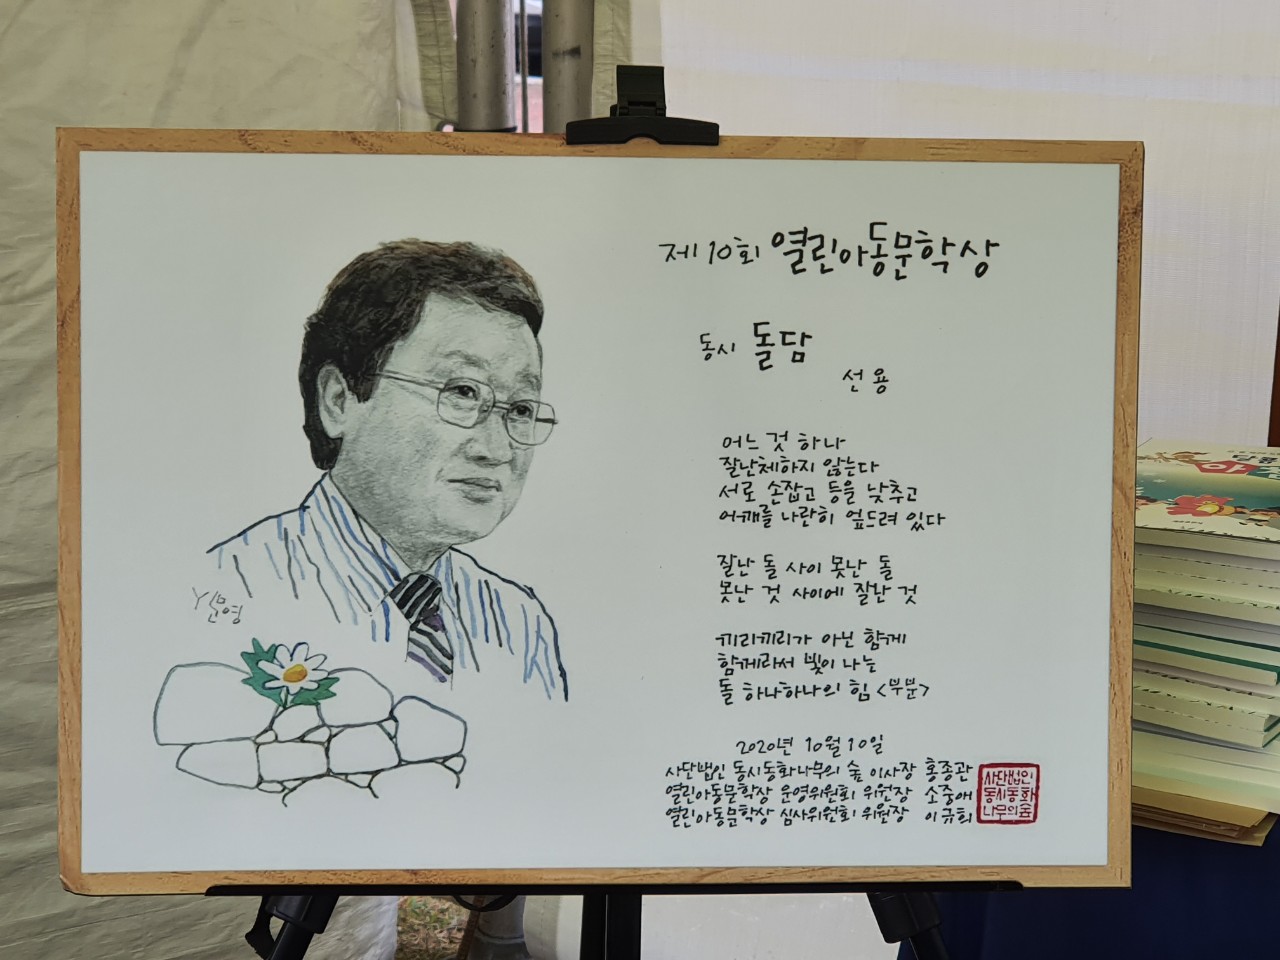 제10회 열린아동문학상
동시 돌담
선용
어느 것 하나
잘난체하지 않는다
서로 손잡고 등을 낮추고
어깨를 나란히 엎드려 있다
잘난 돌 사이 못난 돌
못난 것 사이에 잘난 것
끼리끼리가 아닌 함께
함께라서 빛이 나는
돌 하나하나의 힘 <부분>
2020년 10월 10일
사단법인 동시동화나무의 숲 이사장 홍종관
열린아동문학상 운영위원회 위원장 소중애
열린아동문학상 심사위원회 위원장 이규희
사단법인
동시동화
나무의숲